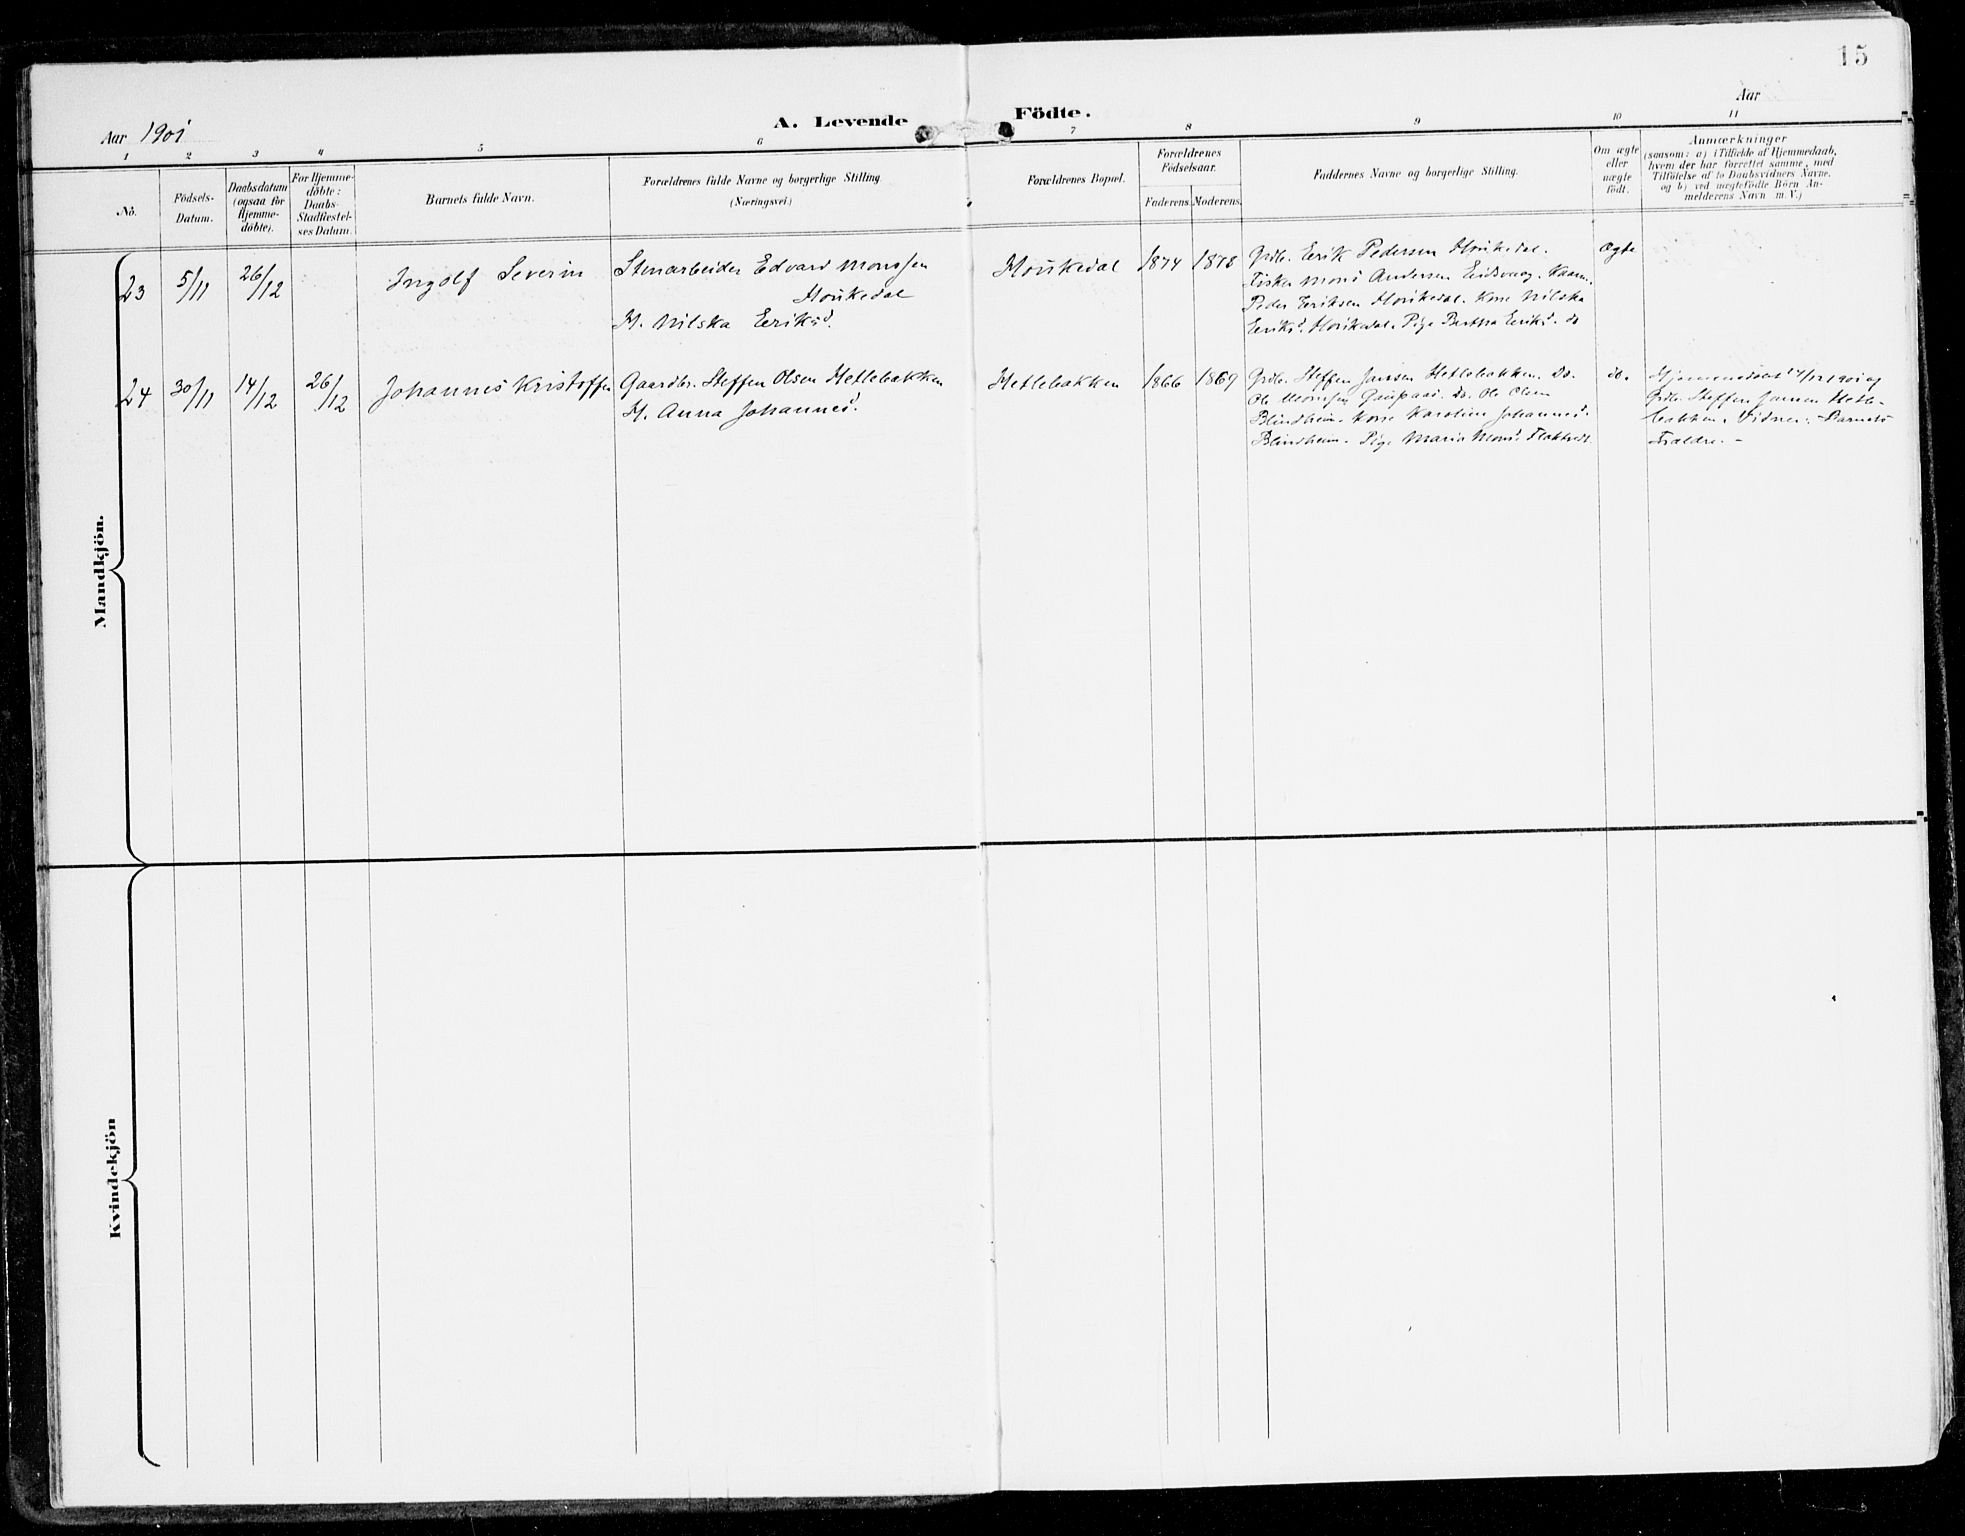 15
Aar 1901
A. Levende Födte.
Aar
1 2 3 4 5 6 7 8 9 10 11
No.
Födsels-
Datum.
Daabsdatum
(ogsaa for
Hjemme-
döbte).
For Hjemme-
döbte:
Daabs-
Stadfæstel-
ses Datum.
Barnets fulde Navn.
Forældrenes fulde Navne og borgerlige Stilling
(Næringsvei.)
Forældrenes Bopæl.
Forældrenes
Födselsaar.
Faderens. Moderens.
Faddernes Navne og borgerlige Stilling.
Om ægte
eller
uægte
födt.
Anmærkninger
(saasom: a) i Tilfælde af Hjemmedaab,
hvem der har forrettet samme, med
Tilföielse af to Daabsvidners Navne,
og b) ved uægtefödte Börn An-
melderens Navn m.V.)
Mandkjön.
23 5/11 26/12 Ingolf Severin
Stenarbeider Edvard Monssen
Houkedal
H. Nilska Eeriksd.
Houkedal 1874 1878
Grdb. Erik Pedersen Houkedal.
Fisker Mons Andersen Eidsvaag.
Peder Eeriksen Houkedal. Kone Nilska
Eeriksd. Houkedal. Pige Bertha Eeriksd. do
Ægte
24 30/11 14/12 26/12 Johannes Kristoffer
Gaardbr. Steffen Olsen Hetlebakken
H. Anna Johannesd.
Hetlebakken 1866 1869
Grdb. Steffen Jansen Hetlebakken. Do.
Ole Monssen Gaupaas. Do. Ole Olsen
Blindheim. Kone Karoline Johannesd.
Blindheim. Pige Maria Monsd. Flaktvedt.
do.
Hjemmedöbt 14/12 1901 af
Grdb. Steffen Jansen Hetle-
bakken. Vidner: Barnets
Forældre. -
Kvindekjön